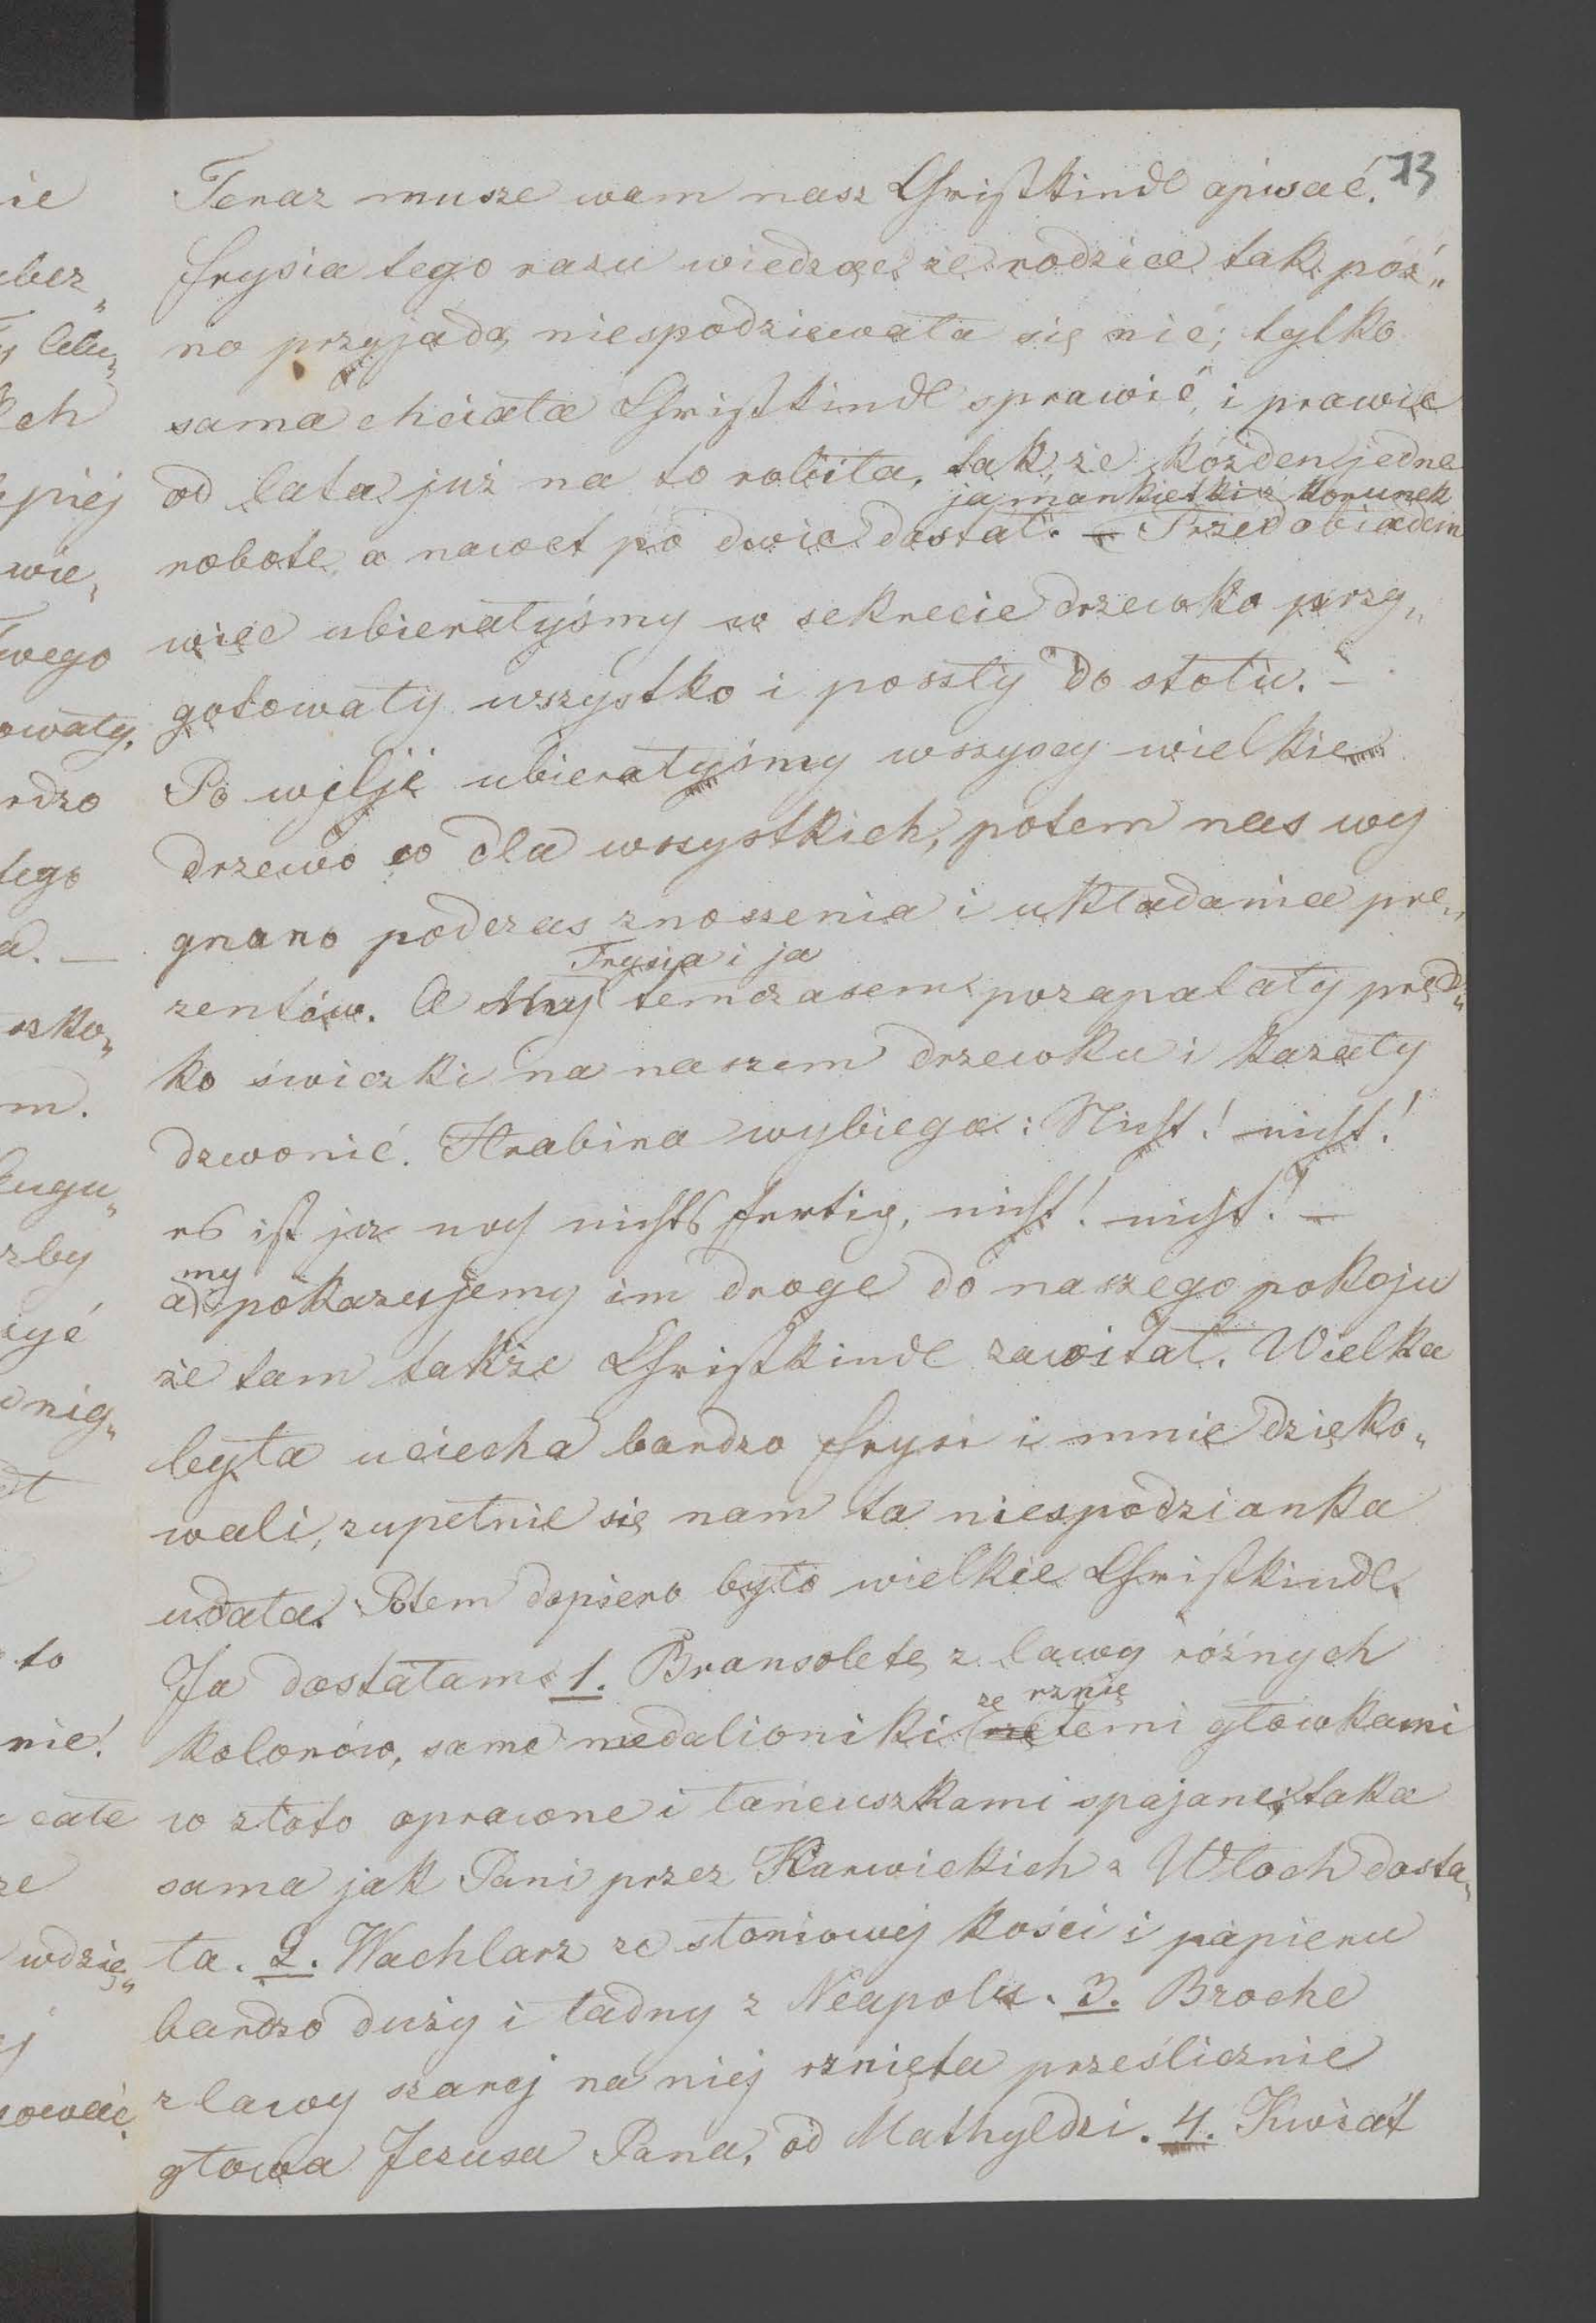 13
Teraz musze wam nasz Christkindl opisać.
Frysia tego razu wiedząc że rodzice tak póź„
no przyjadą, niespodziewała się nić; tylko
sama chciała Christkindl sprawić, i prawie
od lata już na to robiła, tak, że kóżden jedne
ja mankietki z korunek
robote, a nawet po dwie dostał. — Przed obiadem
więc ubierałyśmy w sekrecie drzewko przy„
gotowały wszystko i poszły do stołu. —
Po wylji ubierałyśmy wszyscy wielkie
drzewo dla wszystkich, potem nas wy
gnano podczas znoszenia i układania pre„
Frysia i ja
zentów. A My temczasem pozapalały pręd„
ko świczki na naszem drzewku i kazały
dzwonić. Hrabina wybiega: Nicht! nicht!
es ist ja noch nichts fertig, nicht! nicht! —
my
a pokazujemy im droge do naszego pokoju
że tam także Christkindl zawitał. Wielka
była uciecha bardzo Frysi i mnie dzięko„
wali, zupełnie się nam ta niespodzianka
udała. Potem dopiero było wielkie Christkindl.
Ja dostałam 1. Bransolete z lawy różnych
ze rznię
kolorów, same medalioniki temi główkami
w złoto oprawne i łańcuszkami spajane; taka
sama jak Pani przez Karwickich z Włoch dosta„
ła. 2. Wachlarz ze słoniowej kości i papieru
bardzo duży i ładny z Neapolu. 3. Broche
z lawy szarej na niej rznięta prześlicznie
głowa Jezusa Pana, od Mathyldzi. 4. Kwiat
ie
lelu„
ch
wie„
wego
owały.
rdzo
tego
a. —
szko„
m.
zby
nig„
to
nie!
całe
ze
wdzię„